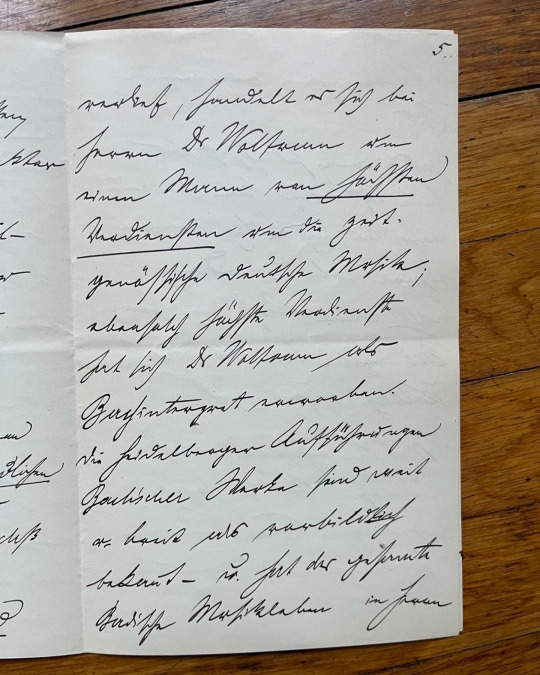 5.
verlief, handelt es sich bei
Herrn Dr Wolfrum um
einen Mann von höchsten
Verdiensten um die zeit-
genössische deutsche Musik;
ebensolch höchste Verdienste
hat sich Dr Wolfrum als
Bachinterpret erworben.
Die Heidelberger Aufführungen
Bachscher Werke sind weit
u. breit als vorbildlich
bekannt – u. hat das gesamte
Badische Musikleben in Herrn